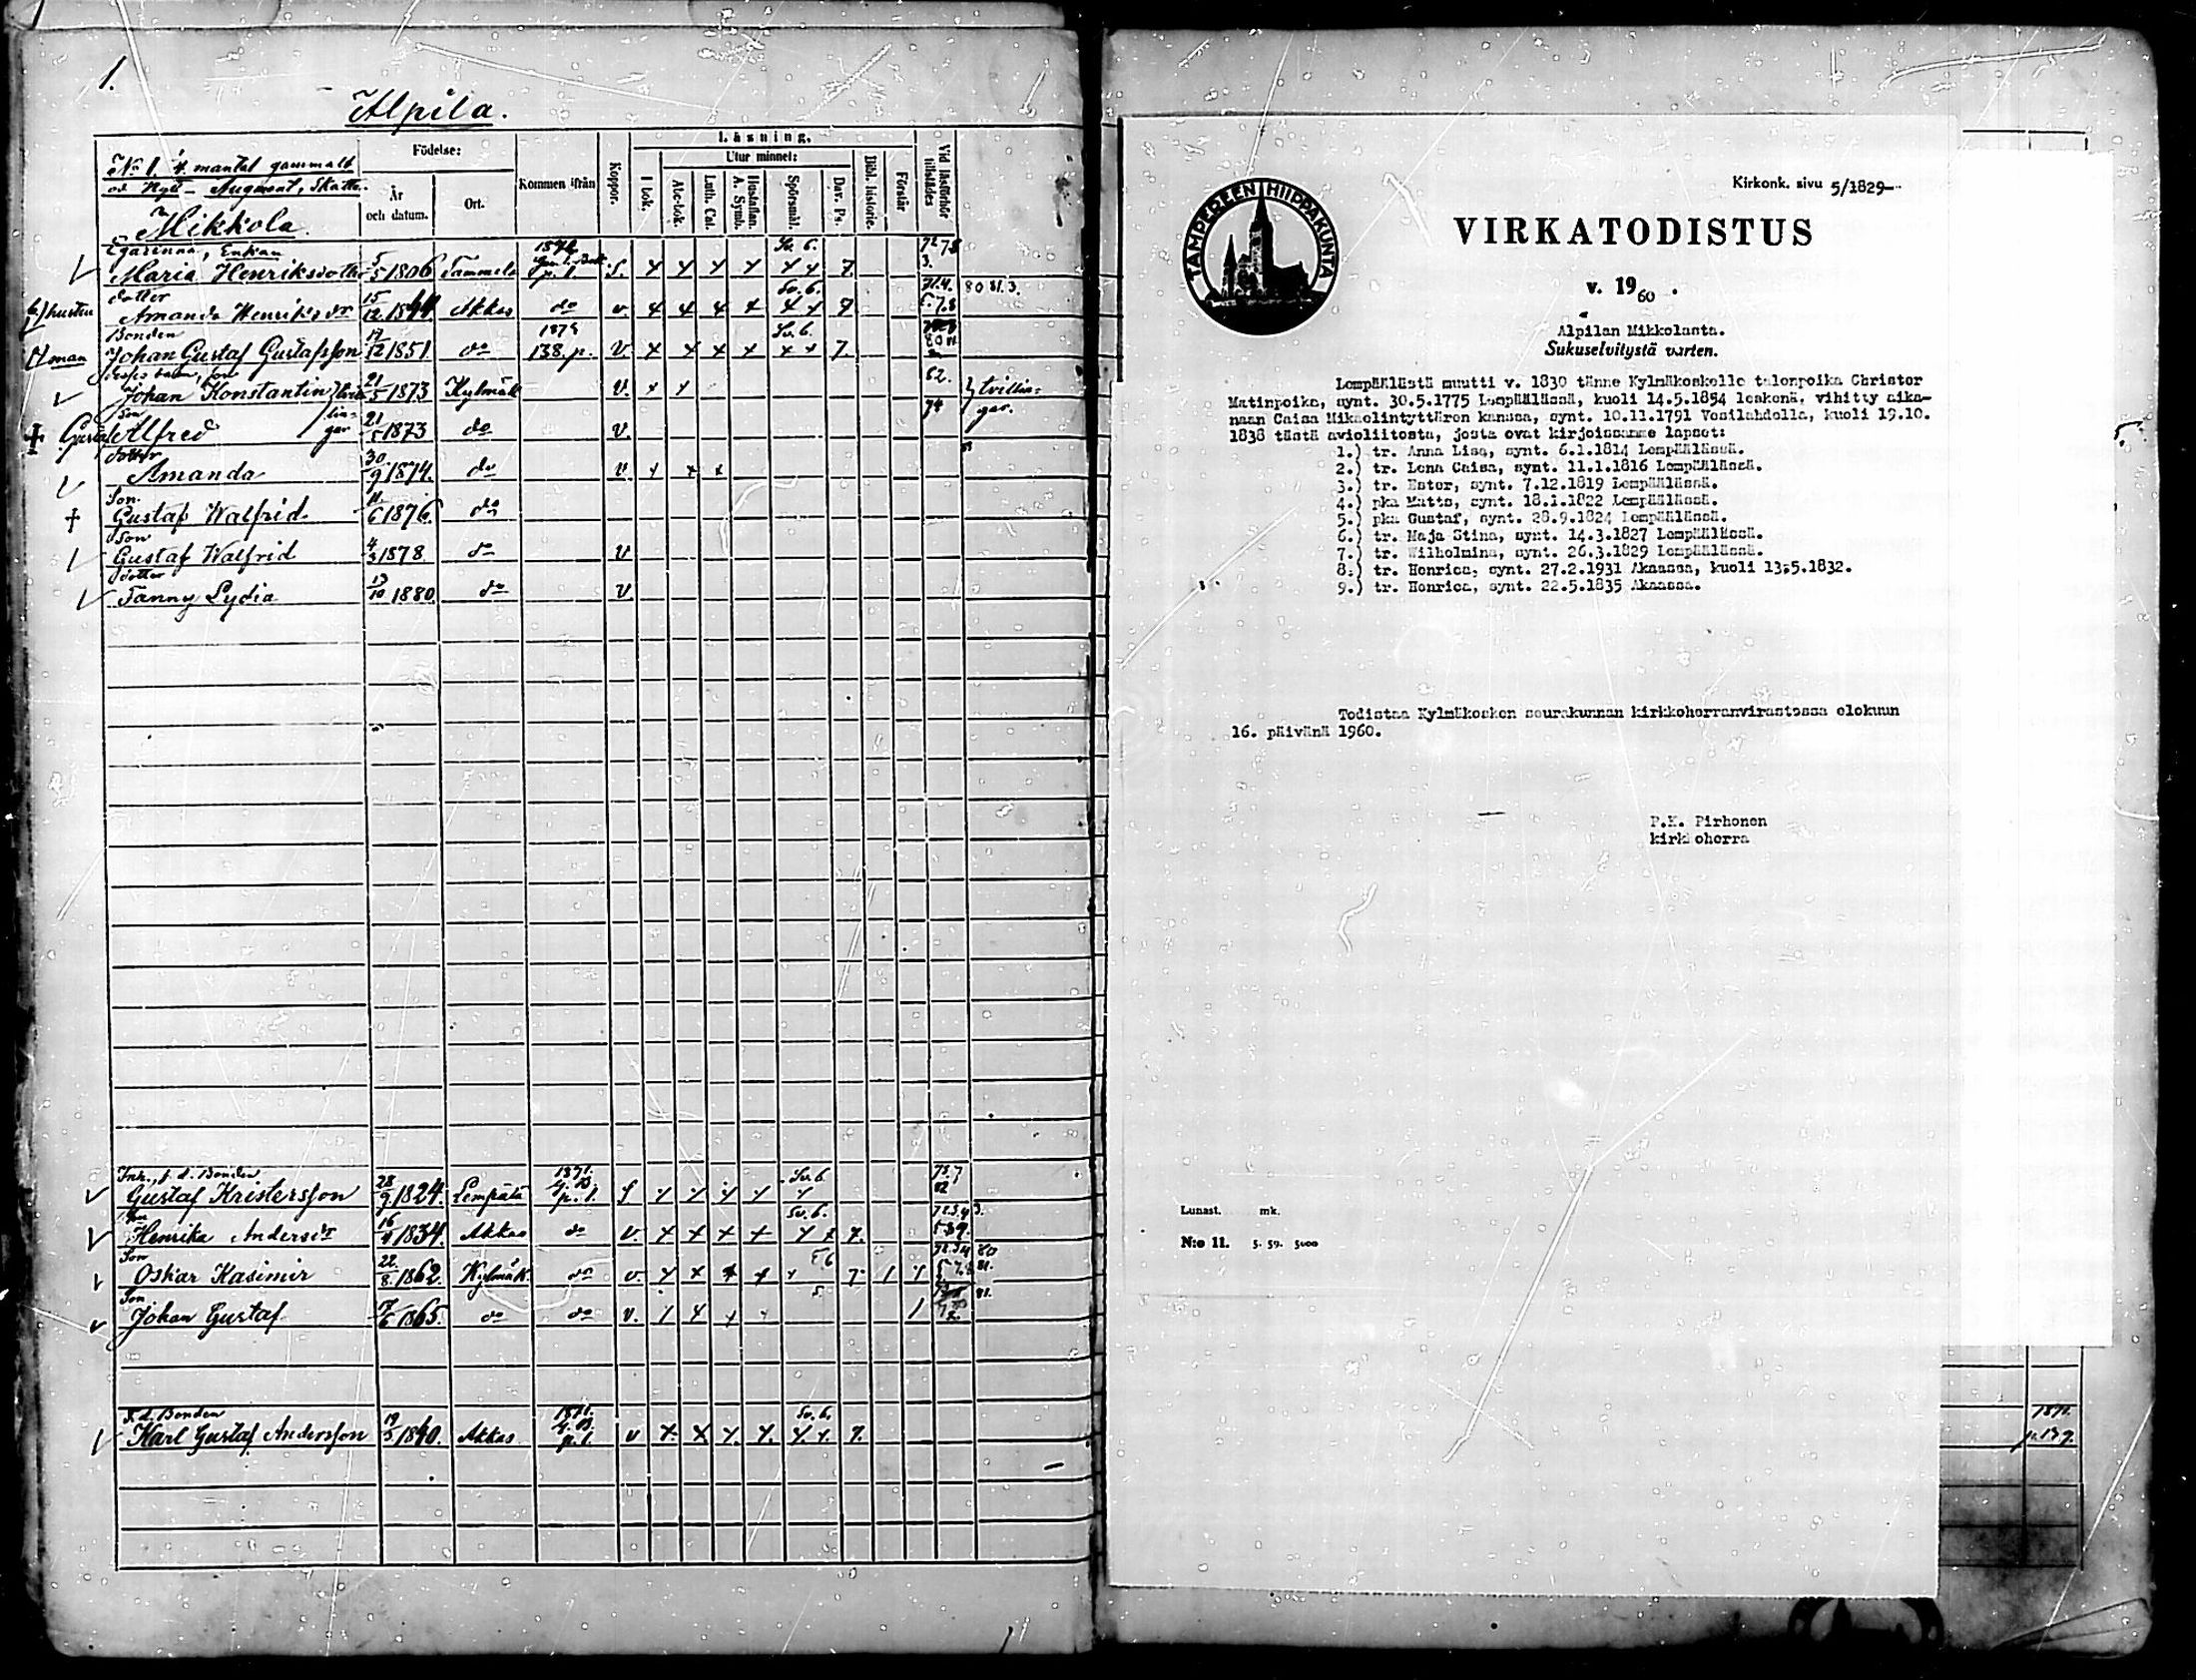 1.
Alpila.
No 1. mantal gammalt
Augment, Skatte.
Mikkola.
Födelse:
År och datum.
Ort.
Kommen ifrån
Koppor.
Läsning.
I bok.
Utur minnet:
Abc-bok.
Luth. Cat.
Hustaflan. A. Symb.
Spörsmål.
Dav. Ps.
Bibl. historie.
Förstår
Vid läsförhör tillstädes
Egarinna, Enkan
Maria Henriksdotter 5/5 1806 Tammela
dotter Sv. 6. 80 81. 3.
b) hustru Amanda Henriksdr 15/12 1844 Akkas do v
Bonden Sv. 6.
a) man Johan Gustaf Gustafsson 17/12 1851. do 138. p. v. 7.
son
Johan Konstantin 21/5 1873 Kylmäk v. 82. tvillingar.
Son
Gustaf Alfred 21/5 1873 do v. 74
dotter
Amanda 30/9 1874. do v
Son.
Gustaf Walfrid. 11/6 1876. do
Son
Gustaf Walfrid 4/3 1878. do v
dotter
Fanny Lydia 13/10 1880. do v
Inh., f. d. Bonden 1871. Sv. 6
Gustaf Kristersson 28/9 1824. Lempälä p. 1.
Sv. 6.
Henrika Andersdr 16/4 1834. Akkas do v.
Son
Oskar Kasimir 22/8 1862. Kylmäk. do v. 7
Son
Johan Gustaf 7/6 1865. do do v. 81.
F. d. Bonden 1871. Sv. 6.
Karl Gustaf Andersson 19/5 1840. Akkas p. 1. v 7.
TAMPEREEN HIIPPAKUNTA
Kirkonk. sivu 5/1829—
VIRKATODISTUS
v. 1960.
Alpilan Mikkolasta.
Sukuselvitystä varten.
Lempäälästä muutti v. 1830 tänne Kylmäkoskelle talonpoika Christer
Matinpoika, synt. 30.5.1775 Lempäälässä, kuoli 14.5.1854 leskenä, vihitty aika-
naan Caisa Mikaelintyttären kanssa, synt. 10.11.1791 Vesilahdella, kuoli 19.10.
1838 tästä avioliitosta, josta ovat kirjoissamme lapset:
1.) tr. Anna Lisa, synt. 6.1.1814 Lempäälässä.
2.) tr. Lena Caisa, synt. 11.1.1816 Lempäälässä.
3.) tr. Ester, synt. 7.12.1819 Lempäälässä.
4.) pka Matts, synt. 18.1.1822 Lempäälässä.
5.) pka Gustaf, synt. 28.9.1824 Lempäälässä.
6.) tr. Maja Stina, synt. 14.3.1827 Lempäälässä.
7.) tr. Wilhelmina, synt. 26.3.1829 Lempäälässä.
8.) tr. Henrica, synt. 27.2.1931 Akaassa, kuoli 13.5.1832.
9.) tr. Henrica, synt. 22.5.1835 Akaassa.
Todistaa Kylmäkosken seurakunnan kirkkoherranvirastossa elokuun
16. päivänä 1960.
P.K. Pirhonen
kirkkoherra
Lunast. mk.
N:o 11. 5. 59. 5000
1871.
p. 139.